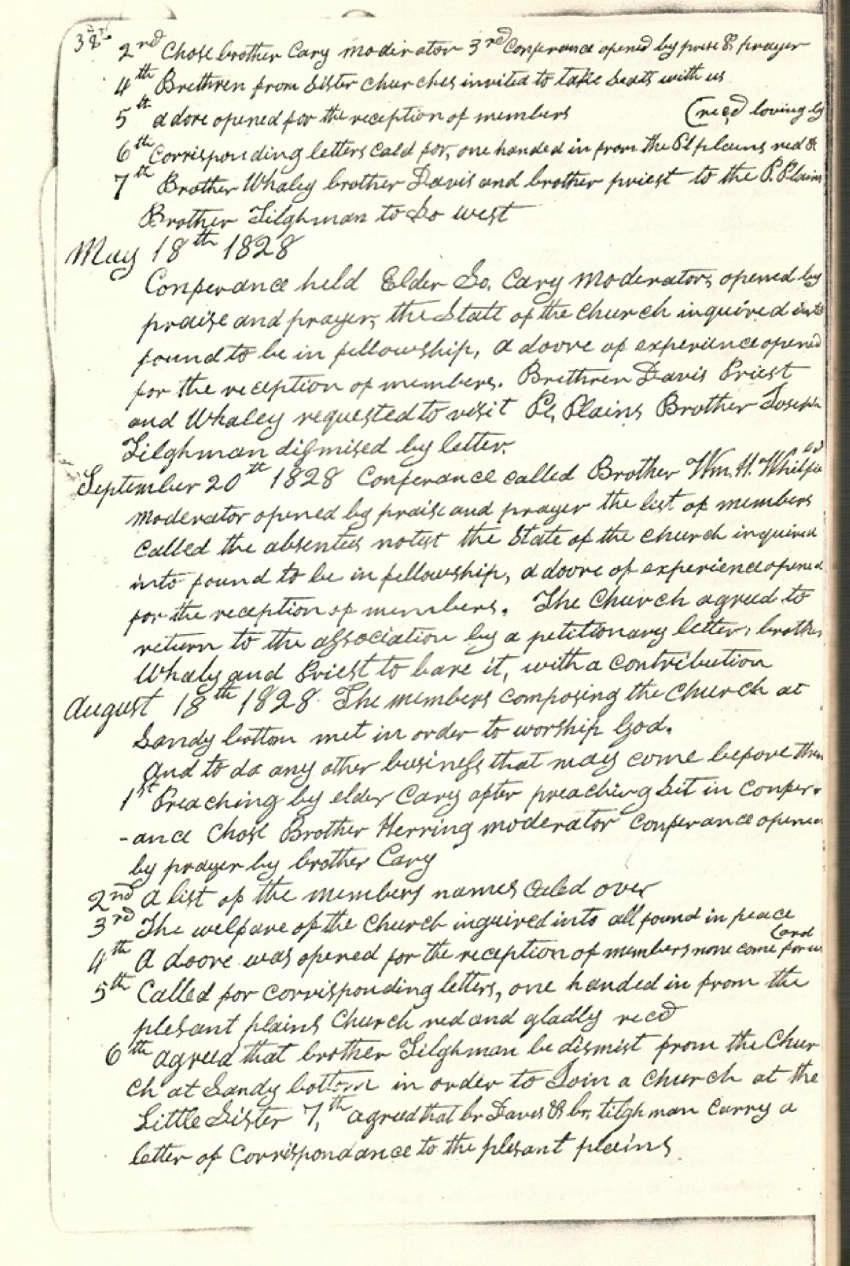 38th
2nd Chose brother Cary moderator 3rd Conferance opened by prese & prayer
4th Brethren from Sister Churches invited to take Seats with us
5th a dore opened for the reception of members (recd loving ly
6th Corrisponding letters cald for, one handed in from the Pl plains red &
7th Brother Whaley brother Davis and brother priest to the P. Plains
Brother Tilghman to Go west
May 18th 1828
Conferance held Elder Go. Cary moderator, opened by
praise and prayer, the State of the church inquired into
found to be in fellowship, a doore of experience opened
for the reception of members. Brethren Davis Priest
and Whaley requested to visit Pl, Plains Brother Joseph
Tilghman dismised by letter.
September 20th 1828 Conferance called Brother Wm. H. Whitfield
moderator opened by praise and prayer the list of members
called the absentees notest the State of the church inquired
into found to be in fellowship, a doore of experience opened
for the reception of members. The Church agreed to
return to the association by a petitionary letter, brother
Whaly and Priest to bare it, with a contribution
August 18th 1828 The members composing the church at
Sandy bottom met in order to worship God.
And to do any other business that may come before them
1st Preaching by elder Cary after preaching Sit in confer-
-ance Chose Brother Herring moderator Conferance opened
by prayer by brother Cary
2nd A list of the members names caled over
3rd The welfare of the Church inquired into all found in peace
4th A doore was opened for the reception of members none come for w (ard
5th Called for corrisponding letters, one handed in from the
plesant plains Church red and gladly recd
6th agreed that brother Tilghman be dismist from the Chur
ch at Sandy bottom in order to Join a church at the
Little Sister 7,th agreed that br Daves & br, tilghman Carry a
letter of Corrispondance to the plesant plains